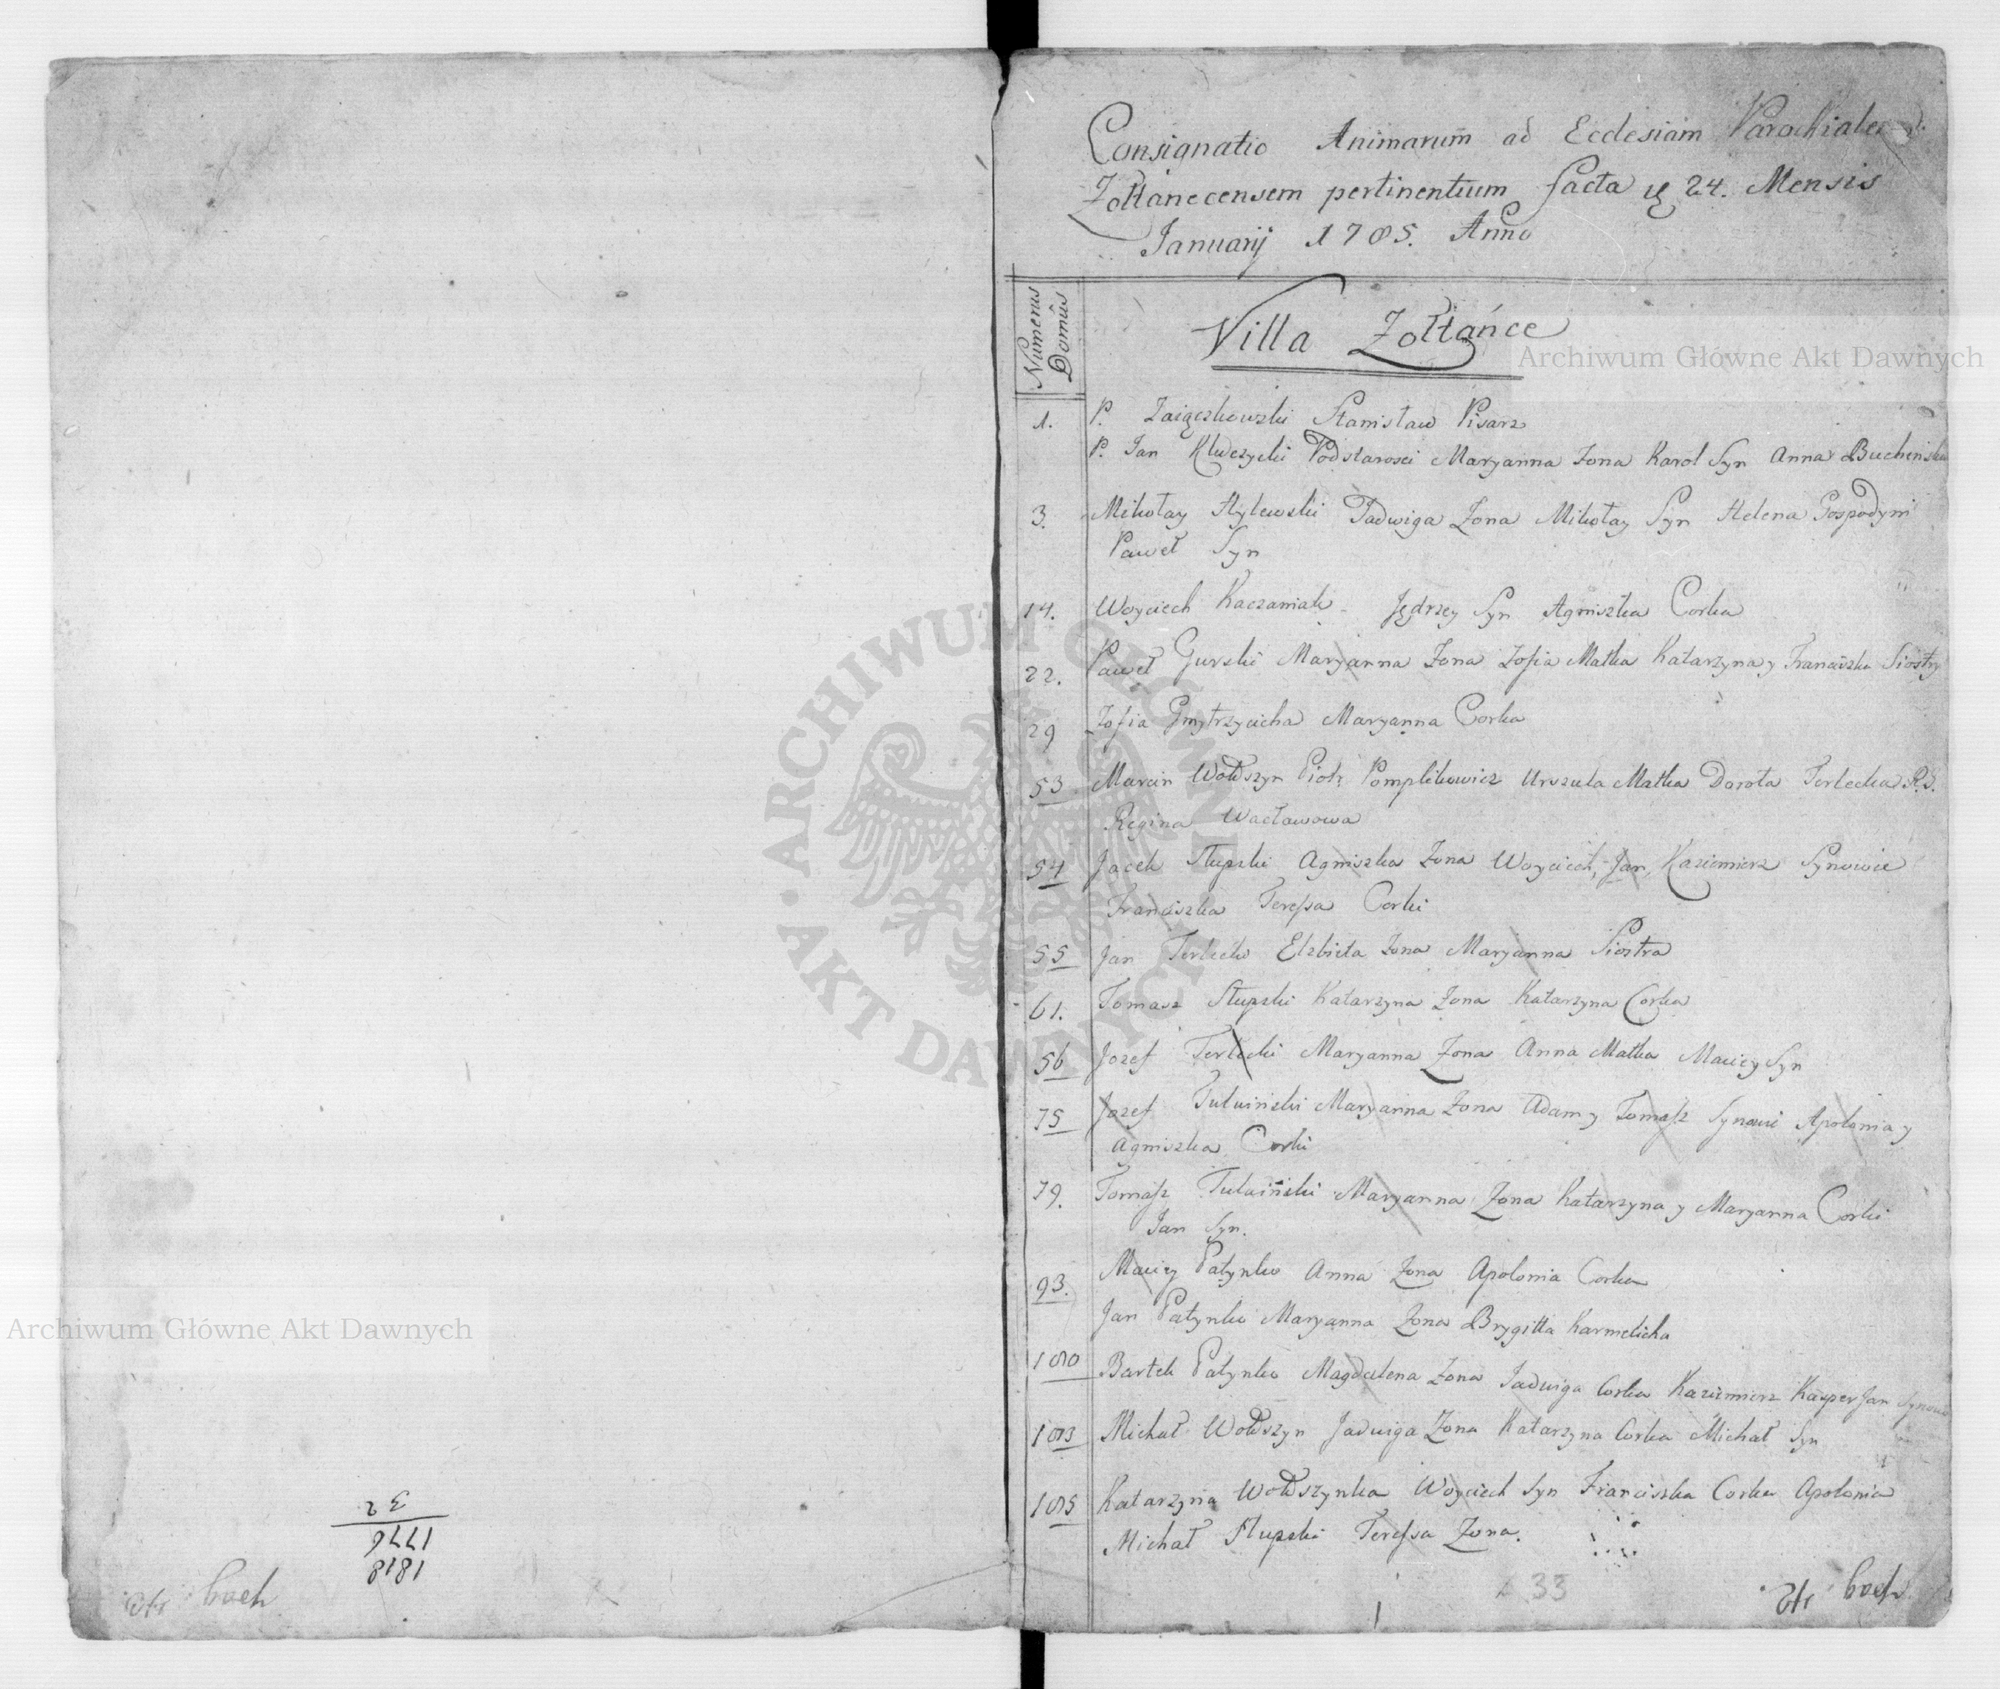 Consignatio Animarum ad Ecclesiam Parochialem
Zołtanecensem pertinentium facta 24. Mensis
Januarij 1785. Anno
Numerus Domûs
Villa Zołtańce
Archiwum Główne Akt Dawnych
1. P. Zaięczkowski Stanisław Pisarz
P. Jan Kluczycki Podstarosci Maryanna Zona Karol Syn Anna Buchinska
3. Mikołay Hylewski Jadwiga Zona Mikołay Syn Helena Gospodyni
Paweł Syn
14. Woyciech Kaczaniak Jędrzey Syn Agniszka Corka
22. Paweł Gurski Maryanna Zona Zofia Matka Katarzyna y Franciszka Siostry
29 Zofia Gmytrzycicha Maryanna Corka
53 Marcin Wołoszyn Piotr Pomplikowicz Urszula Matka Dorota Terlecka
Regina Wacławowa
54 Jacek Słupski Agniszka Zona Woyciech, Jan, Kazimierz Synowie
Franciszka Teressa Corki
55 Jan Terlecki Elzbieta Zona Maryanna Siostra
61. Tomasz Słupski Katarzyna Zona Katarzyna Corka
56 Jozef Terlecki Maryanna Zona Anna Matka Maciey Syn
75 Jozef Tulwiński Maryanna Zona Adam y Tomasz Synowie Apolonia y
Agniszka Corki
79. Tomasz Tulwiński Maryanna Zona Katarzyna y Maryanna Corki
Jan Syn.
93. Maciey Patynko Anna Zona Apolonia Corka
Jan Patynko Maryanna Zona Brygitta Karmelicha
100 Bartek Patynko Magdalena Zona Jadwiga Corka Kazimierz Kasper Jan Synowie
103 Michał Wołoszyn Jadwiga Zona Katarzyna Corka Michał Syn
105 Katarzyna Wołoszynka Woyciech Syn Franciszka Corka Apolonia
Michał Słupski Teressa Zona.
33
1
Archiwum Główne Akt Dawnych
1818
1776
32
ARCHIWUM GŁÓWNE AKT DAWNYCH